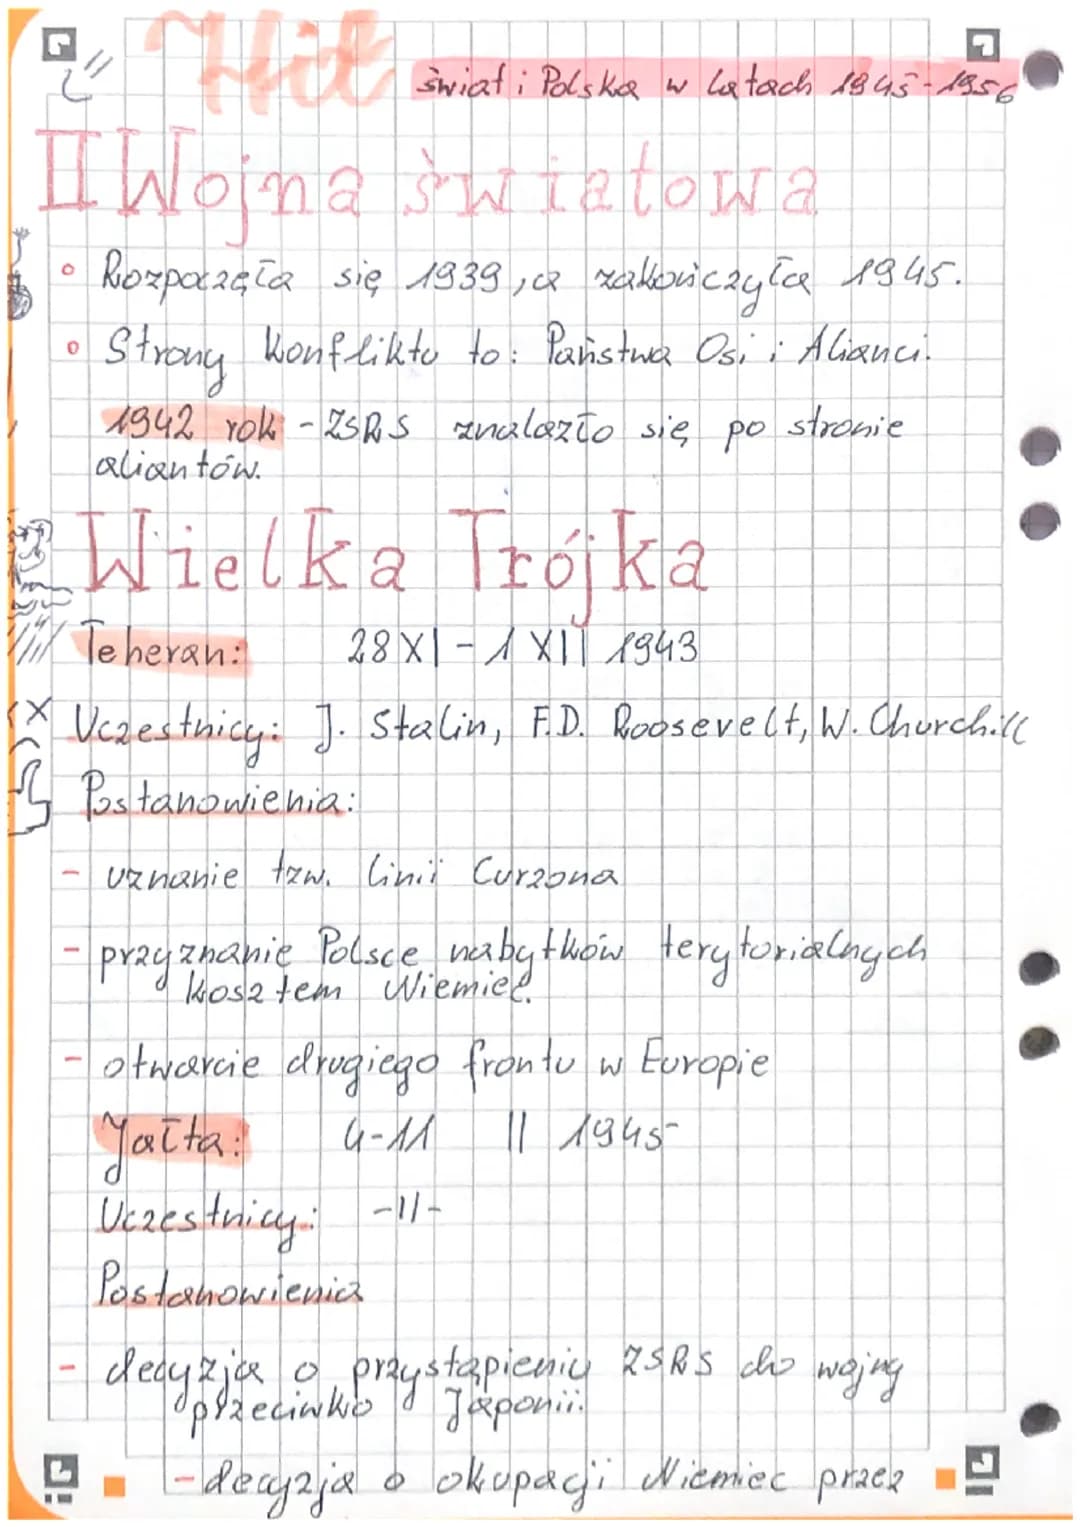 Hit
świat i Polska w latach 1945-1956
II Wojna światowa
Rozpoczęła się 1939, a zakończyła 1945.
Strony konfliktu to: Państwa Osi i Alianci.
1942 rok - ZSRS znalazło się po stronie
aliantów.
Wielka Trójka
Teheran: 28 XI - 1 XII 1943
Uczestnicy: J. Stalin, F.D. Roosevelt, W. Churchill
Postanowienia:
- uznanie tzw. linii Curzona
- przyznanie Polsce nabytków terytorialnych
kosztem Niemiec.
- otwarcie drugiego frontu w Europie
Jałta: 4-11 II 1945
Uczestnicy: -11-
Postanowienia
- decyzja o przystąpieniu ZSRS do wojny
przeciwko Japonii.
- decyzja o okupacji Niemiec przez